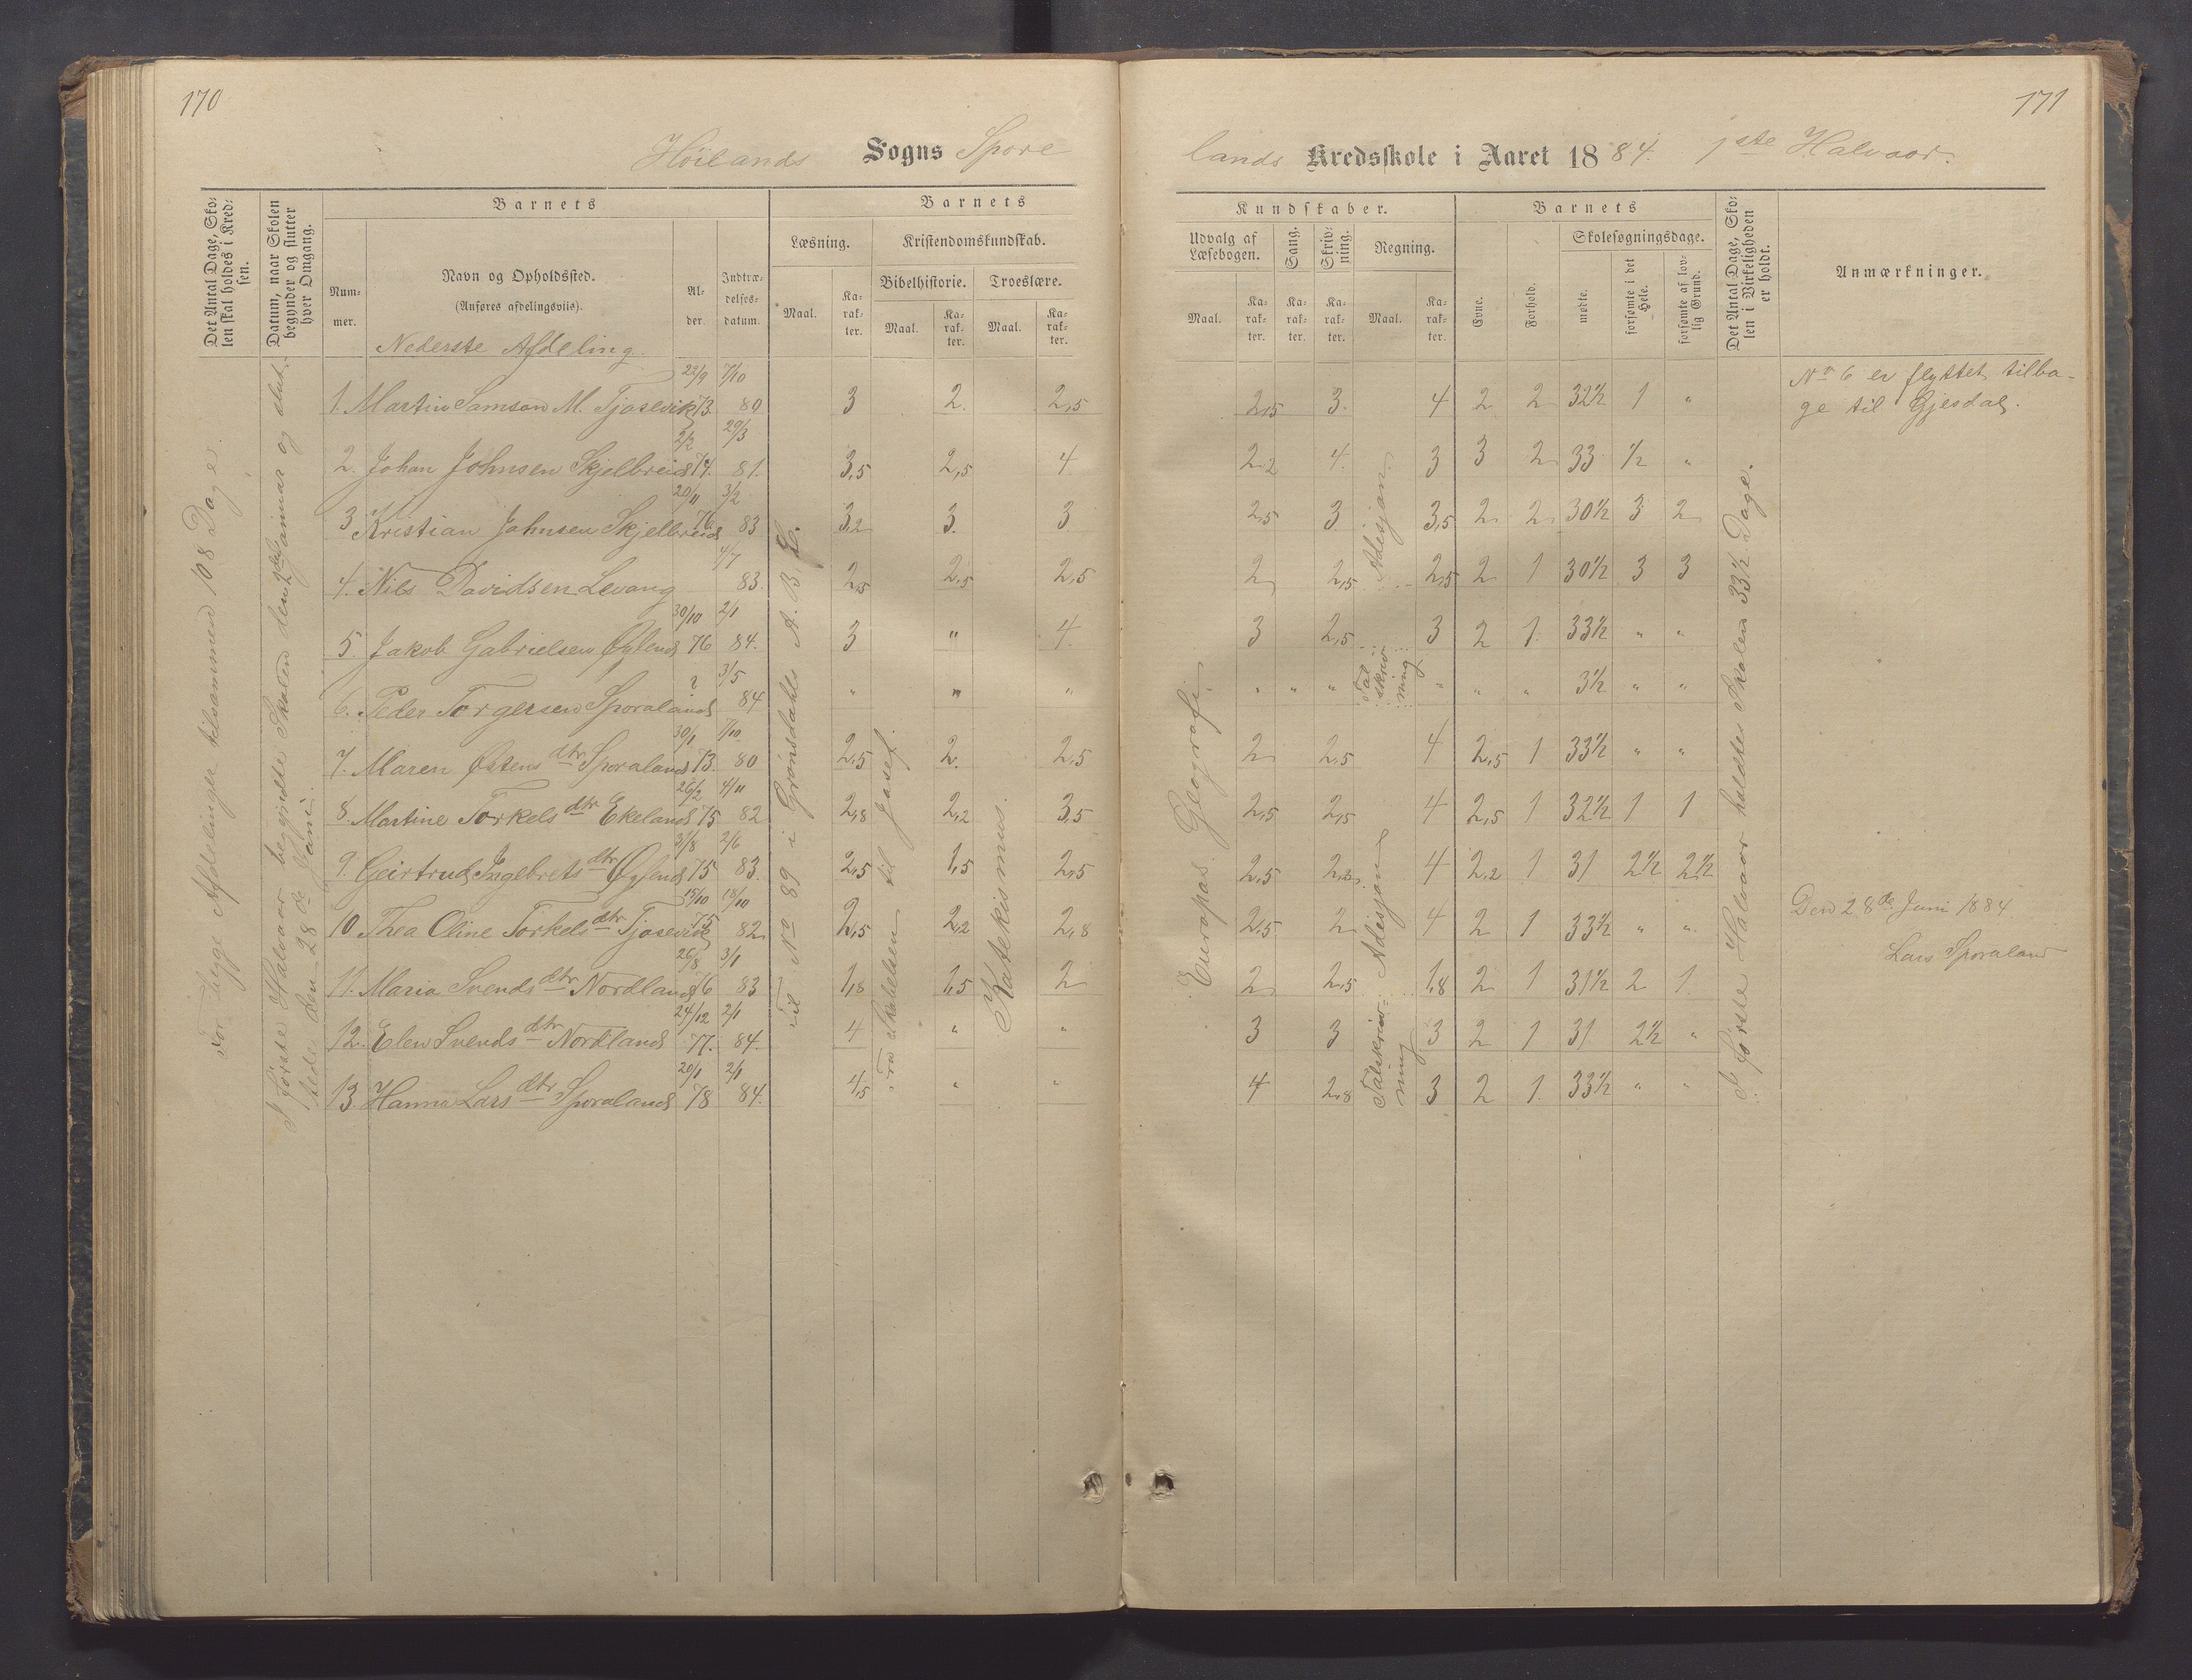 170
Höilands Sogns Spore
Det Antal Dage, Sko-
len skal holdes i Kred-
sen.
Datum, naar Skolen
begynder og slutter
hver Omgang.
Barnets
Barnets
Num-
mer.
Navn og Opholdssted.
(Anføres afdelingsviis).
Al-
der.
Indtræ-
delses-
datum.
Læsning.
Kristendomskundskab.
Maal.
Ka-
rak-
ter.
Bibelhistorie.
Troeslære.
Maal.
Ka-
rak-
ter.
Maal.
Ka-
rak-
ter.
Nederste Afdeling.
22/9 7/10
1. Martin Samson M. Tjosevik 73. 80 3 2. 2,5
2/2 29/3
2. Johan Johnsen Skjelbreid 74. 81. 3,5 2,5 4
20/11 3/2
3 Kristian Johnsen Skjelbreid 76 83 3,2 3. 3
4/7
4. Nils Davidsen Levang 83. 2,5 2,5 2,5
30/10 2/1
5. Jakob Gabrielsen Øylend 76 84. 3 " 4.
? 3/5
6. Peder Torgersen Sporaland 84 " " "
30/1 7/10
7. Maren Østens dtr Sporaland 73. 80 2,5 2. 2,5
26/2 4/11
8. Martine Torkels dtr Ekeland 75 82 2,8 2,2 3,5
31/8 2/6
9. Geirtrud Ingebrets dtr Øylend 75 83. 2,5 1,5 2,5
15/10 18/10
10 Thea Oline Torkels dtr Tjosevik 75 82 2,5 2,2 2,8
26/8 3/1
11. Maria Svends dtr Nordland 76 83 1,8 1,5 2
24/12 2/1
12. Elen Svends dtr Nordland 77. 84. 4 " "
20/1 2/1
13. Hanna Lars dtr Sporaland 78 84. 4,5 " "
For begge Afdelinger tilsammen 108 Dage.
I første Halvaar begyndte Skolen den 2den Januar og slut-
tede den 28de Juni.
Til No 89 i Grønsdahls A. B. C.
Fra Skabelsen til Josef.
Katekismus.
171
lands Kredsskole i Aaret 1884. 1ste Halvaar.
Kundskaber.
Barnets
Udvalg af
Læsebogen.
Sang.
Skriv-
ning.
Regning.
Maal.
Ka-
rak-
ter.
Ka-
rak-
ter.
Ka-
rak-
ter.
Maal.
Ka-
rak-
ter.
Evne.
Forhold.
Skolesøgningsdage.
mødte.
forsømte i det
Hele.
forsømte af lov-
lig Grund.
Det Antal Dage, Sko-
len i Virkeligheden
er holdt.
Anmærkninger.
2,5 3. 4 2 2 32½ 1 "
2,2 4. 3 3 2 33 ½ "
2,5 3 3,5 2 2 30½ 3 2
2 2,5 2,5 2 1 30½ 3 3
3 2,5 3 2 1 33½ " "
" " " " " " 3½ " "
2 2,5 4 2,5 1 33½ " "
2,5 2,5 4 2,5 1 32½ 1 1
2,5 2,2 4 2,2 1 31 2½ 2½
2,5 2 4 2 1 33½ " "
2 2,5 1,8 2 1 31½ 2 1
3 3 3 2 1 31 2½ "
4 2,8 3 2 1. 33½ " "
Europas Geografi.
Adisjon
Tal
skriv
ning
Adisjon
Talskriv-
ning
I første Halvaar holdtes Skolen 33½ Dage.
No 6 er flyttet tilba-
ge til Gjesdal.
Den 28de Juni 1884
Lars Sporaland